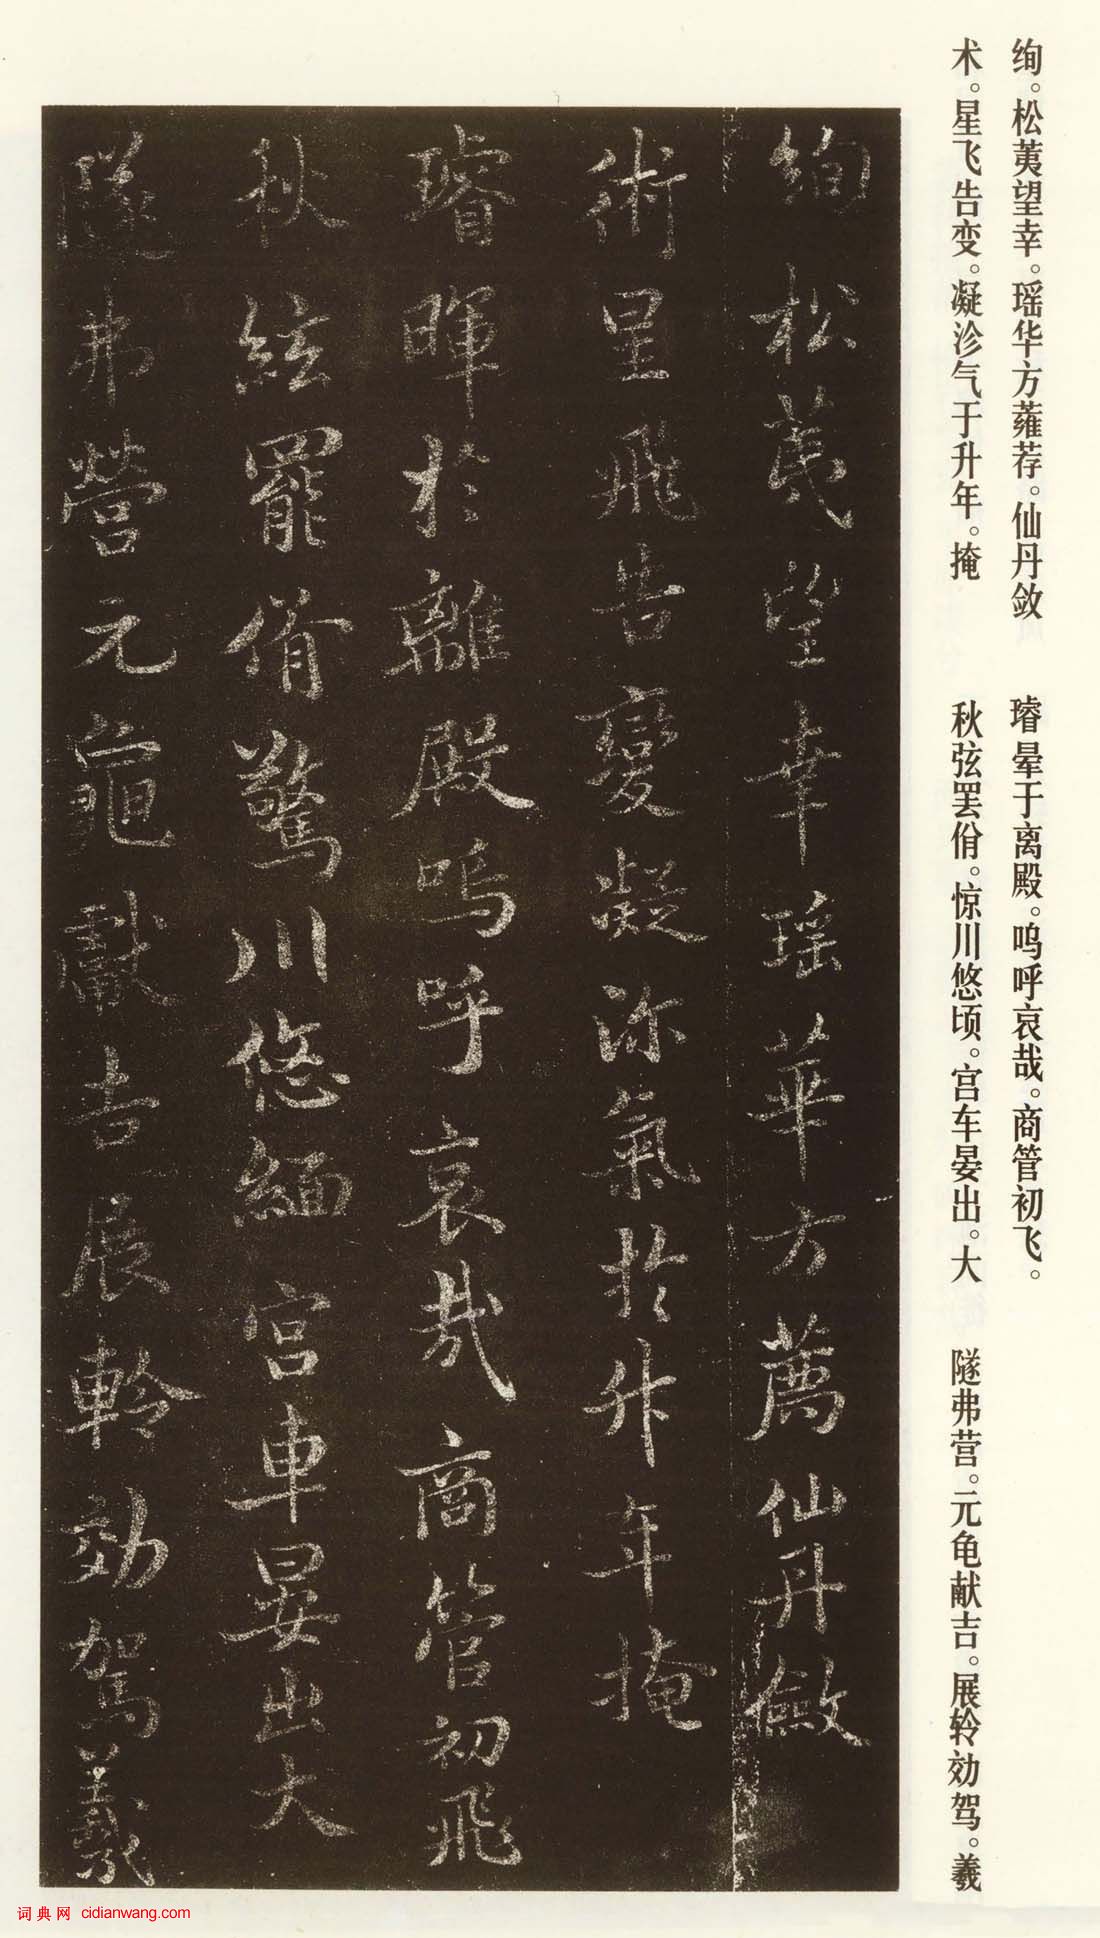 绚。松荑望幸。瑶华方蕹荐。仙丹敛
术。星飞告变。凝沴气于升年。掩
璿晕于离殿。呜呼哀哉。商管初飞。
秋弦罢佾。惊川悠顷。宫车晏出。大
隧弗营。元龟献吉。展轸効驾。羲
絢松荑望幸瑶華方薦仙丹斂
術星飛告變凝沵氣於升年掩
璿暉於離殿嗚呼哀哉商管初飛
秋絃罷佾驚川悠緬宫車晏出大
隧弗營元龜獻吉展軨効駕羲
词典网 cidianwang.com